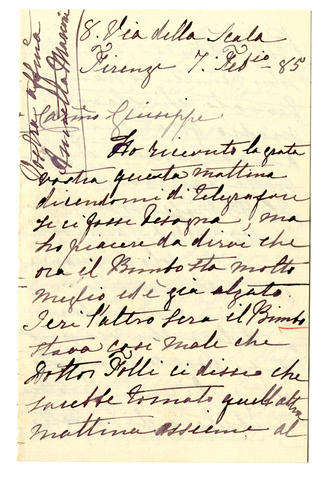 8. Via della Scala
Firenze 7. Febio 85
Carissimo Giuseppe
Ho ricevuto la grata
vostra questa mattina
dicendomi di telegrafare
se ci fosse bisogna, ma
ho piacere da dirvi che
ora il Bimbo sta molto
meglio ed è già alzato
Jeri l'altro sera il Bimbo
stava così male che
Dottor Tolli ci disse che
sarebbe tornato quell'altra
mattina assieme al
Vostra affma